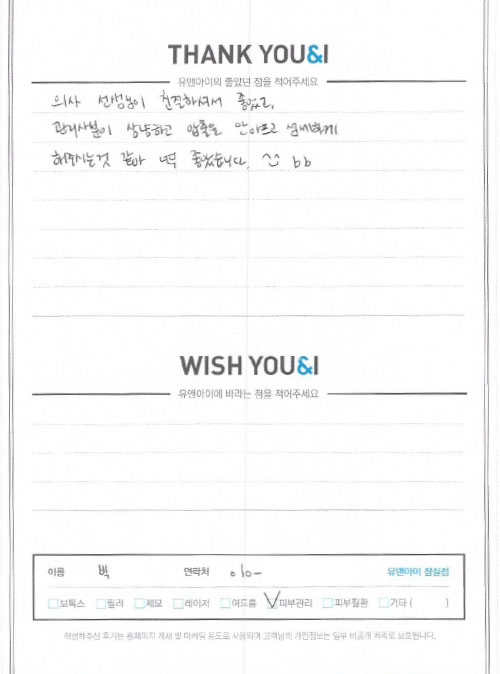 THANK YOU&I
유앤아이의 좋았던 점을 적어주세요
의사 선생님이 친절하셔서 좋았고,
관리사분이 상냥하고 압출을 안아프고 섬세하게
해주시는것 같아 너무 좋았습니다. bb
WISH YOU&I
유앤아이에 바라는 점을 적어주세요
이름 백 연락처 010- 유앤아이 잠실점
보톡스 필러 제모 레이저 여드름 피부관리 피부질환 기타 ( )
작성해주신 후기는 홈페이지 게재 및 마케팅 용도로 사용되며 고객님의 개인정보는 일부 비공개 처리로 보호됩니다.